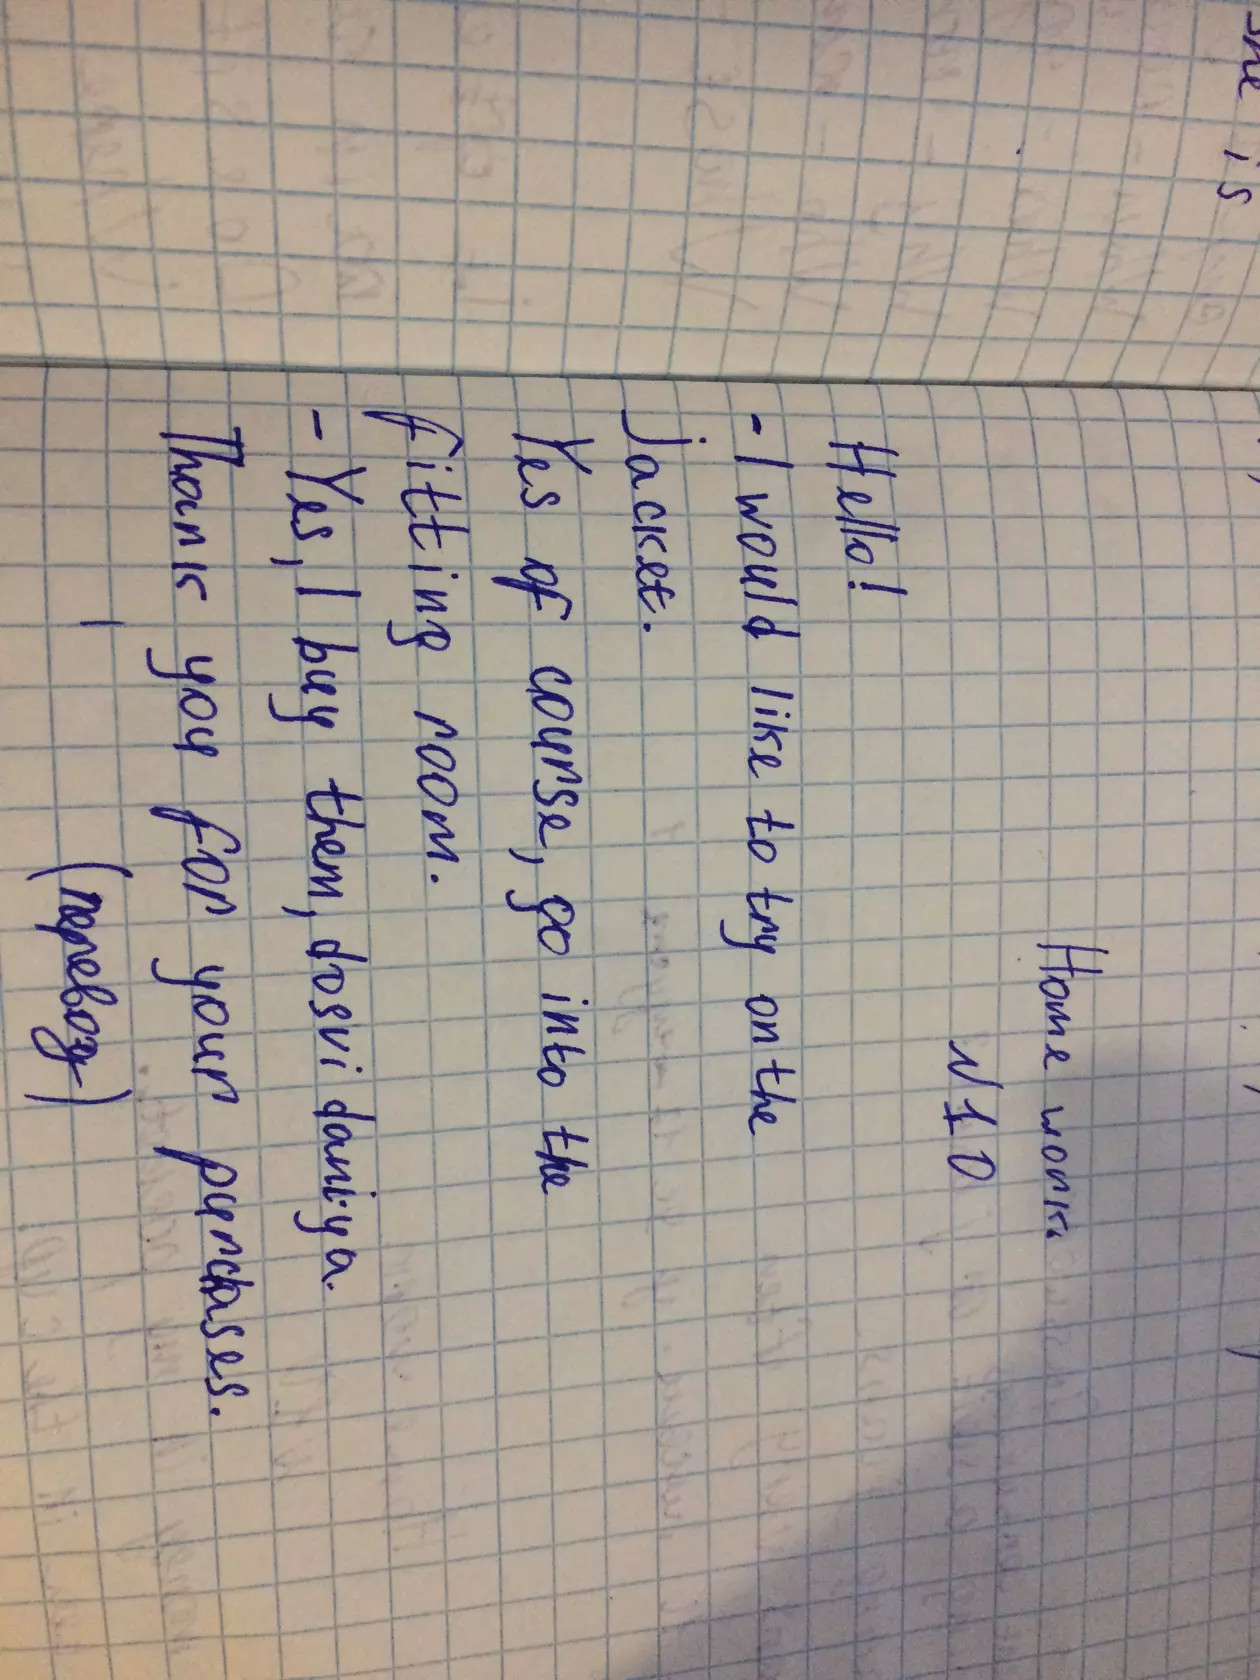 she is
Home work
N10
Hello!
- I would like to try on the
jacket.
Yes of course, go into the
fitting room.
- Yes, I buy them, dosvi daniya.
Thank you for your purchases.